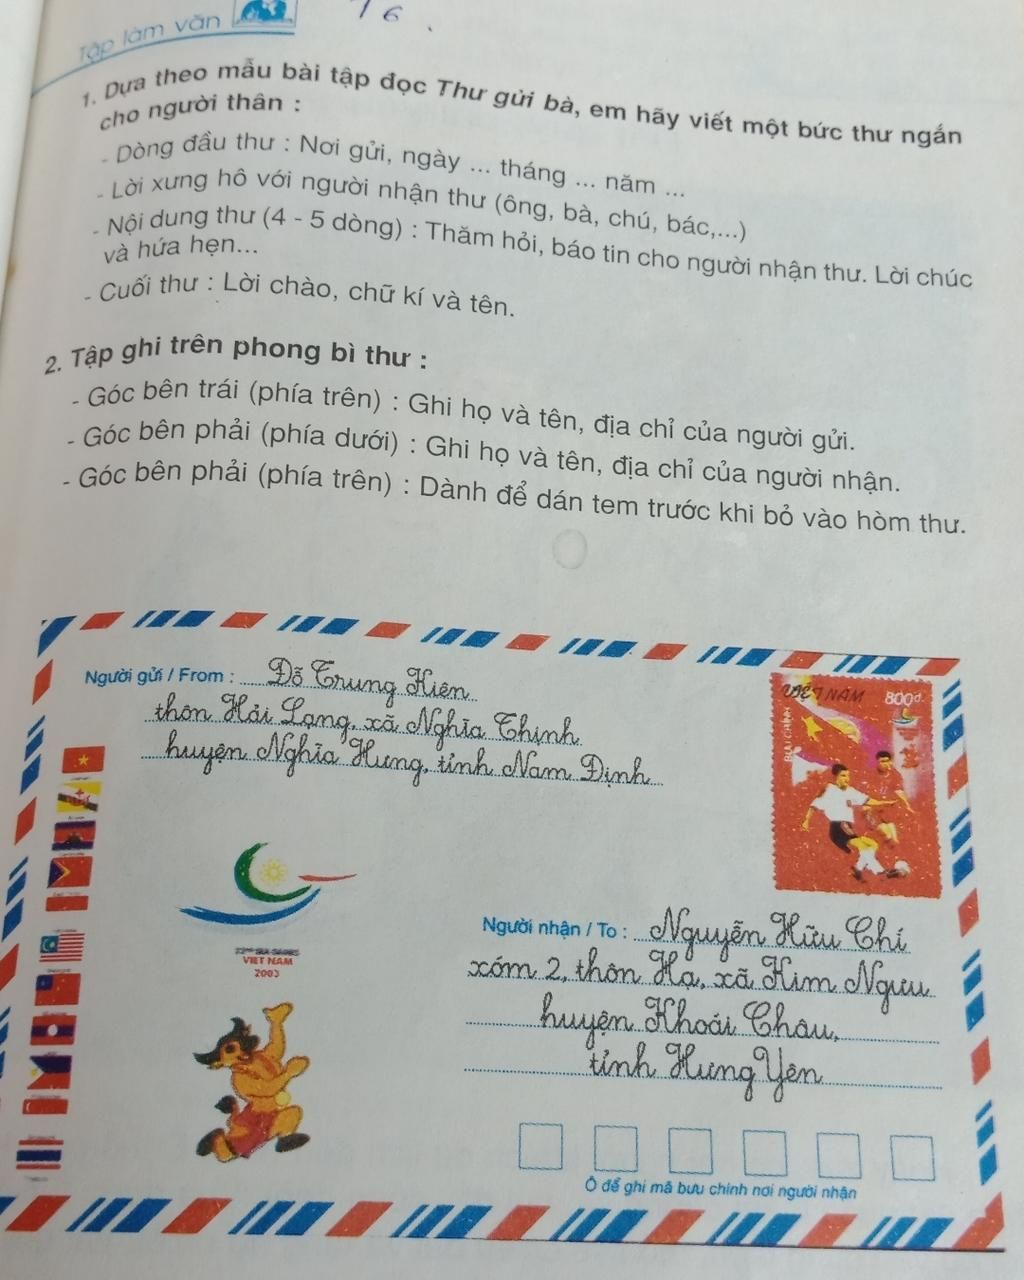 Tập làm văn
16.
1. Dựa theo mẫu bài tập đọc Thư gửi bà, em hãy viết một bức thư ngắn
cho người thân :
- Dòng đầu thư : Nơi gửi, ngày ... tháng ... năm ...
- Lời xưng hô với người nhận thư (ông, bà, chú, bác,...)
- Nội dung thư (4 - 5 dòng) : Thăm hỏi, báo tin cho người nhận thư. Lời chúc
và hứa hẹn...
- Cuối thư : Lời chào, chữ kí và tên.
2. Tập ghi trên phong bì thư :
- Góc bên trái (phía trên) : Ghi họ và tên, địa chỉ của người gửi.
- Góc bên phải (phía dưới) : Ghi họ và tên, địa chỉ của người nhận.
- Góc bên phải (phía trên) : Dành để dán tem trước khi bỏ vào hòm thư.
Người gửi / From : Đỗ Trung Kiên
thôn Hải Lạng, xã Nghĩa Thịnh
huyện Nghĩa Hưng, tỉnh Nam Định
VIỆT NAM 800đ
BƯU CHÍNH
22nd SEA GAMES
VIET NAM
2003
Người nhận / To : Nguyễn Hữu Chí
xóm 2, thôn Hạ, xã Kim Ngưu
huyện Khoái Châu,
tỉnh Hưng Yên
Ô để ghi mã bưu chính nơi người nhận